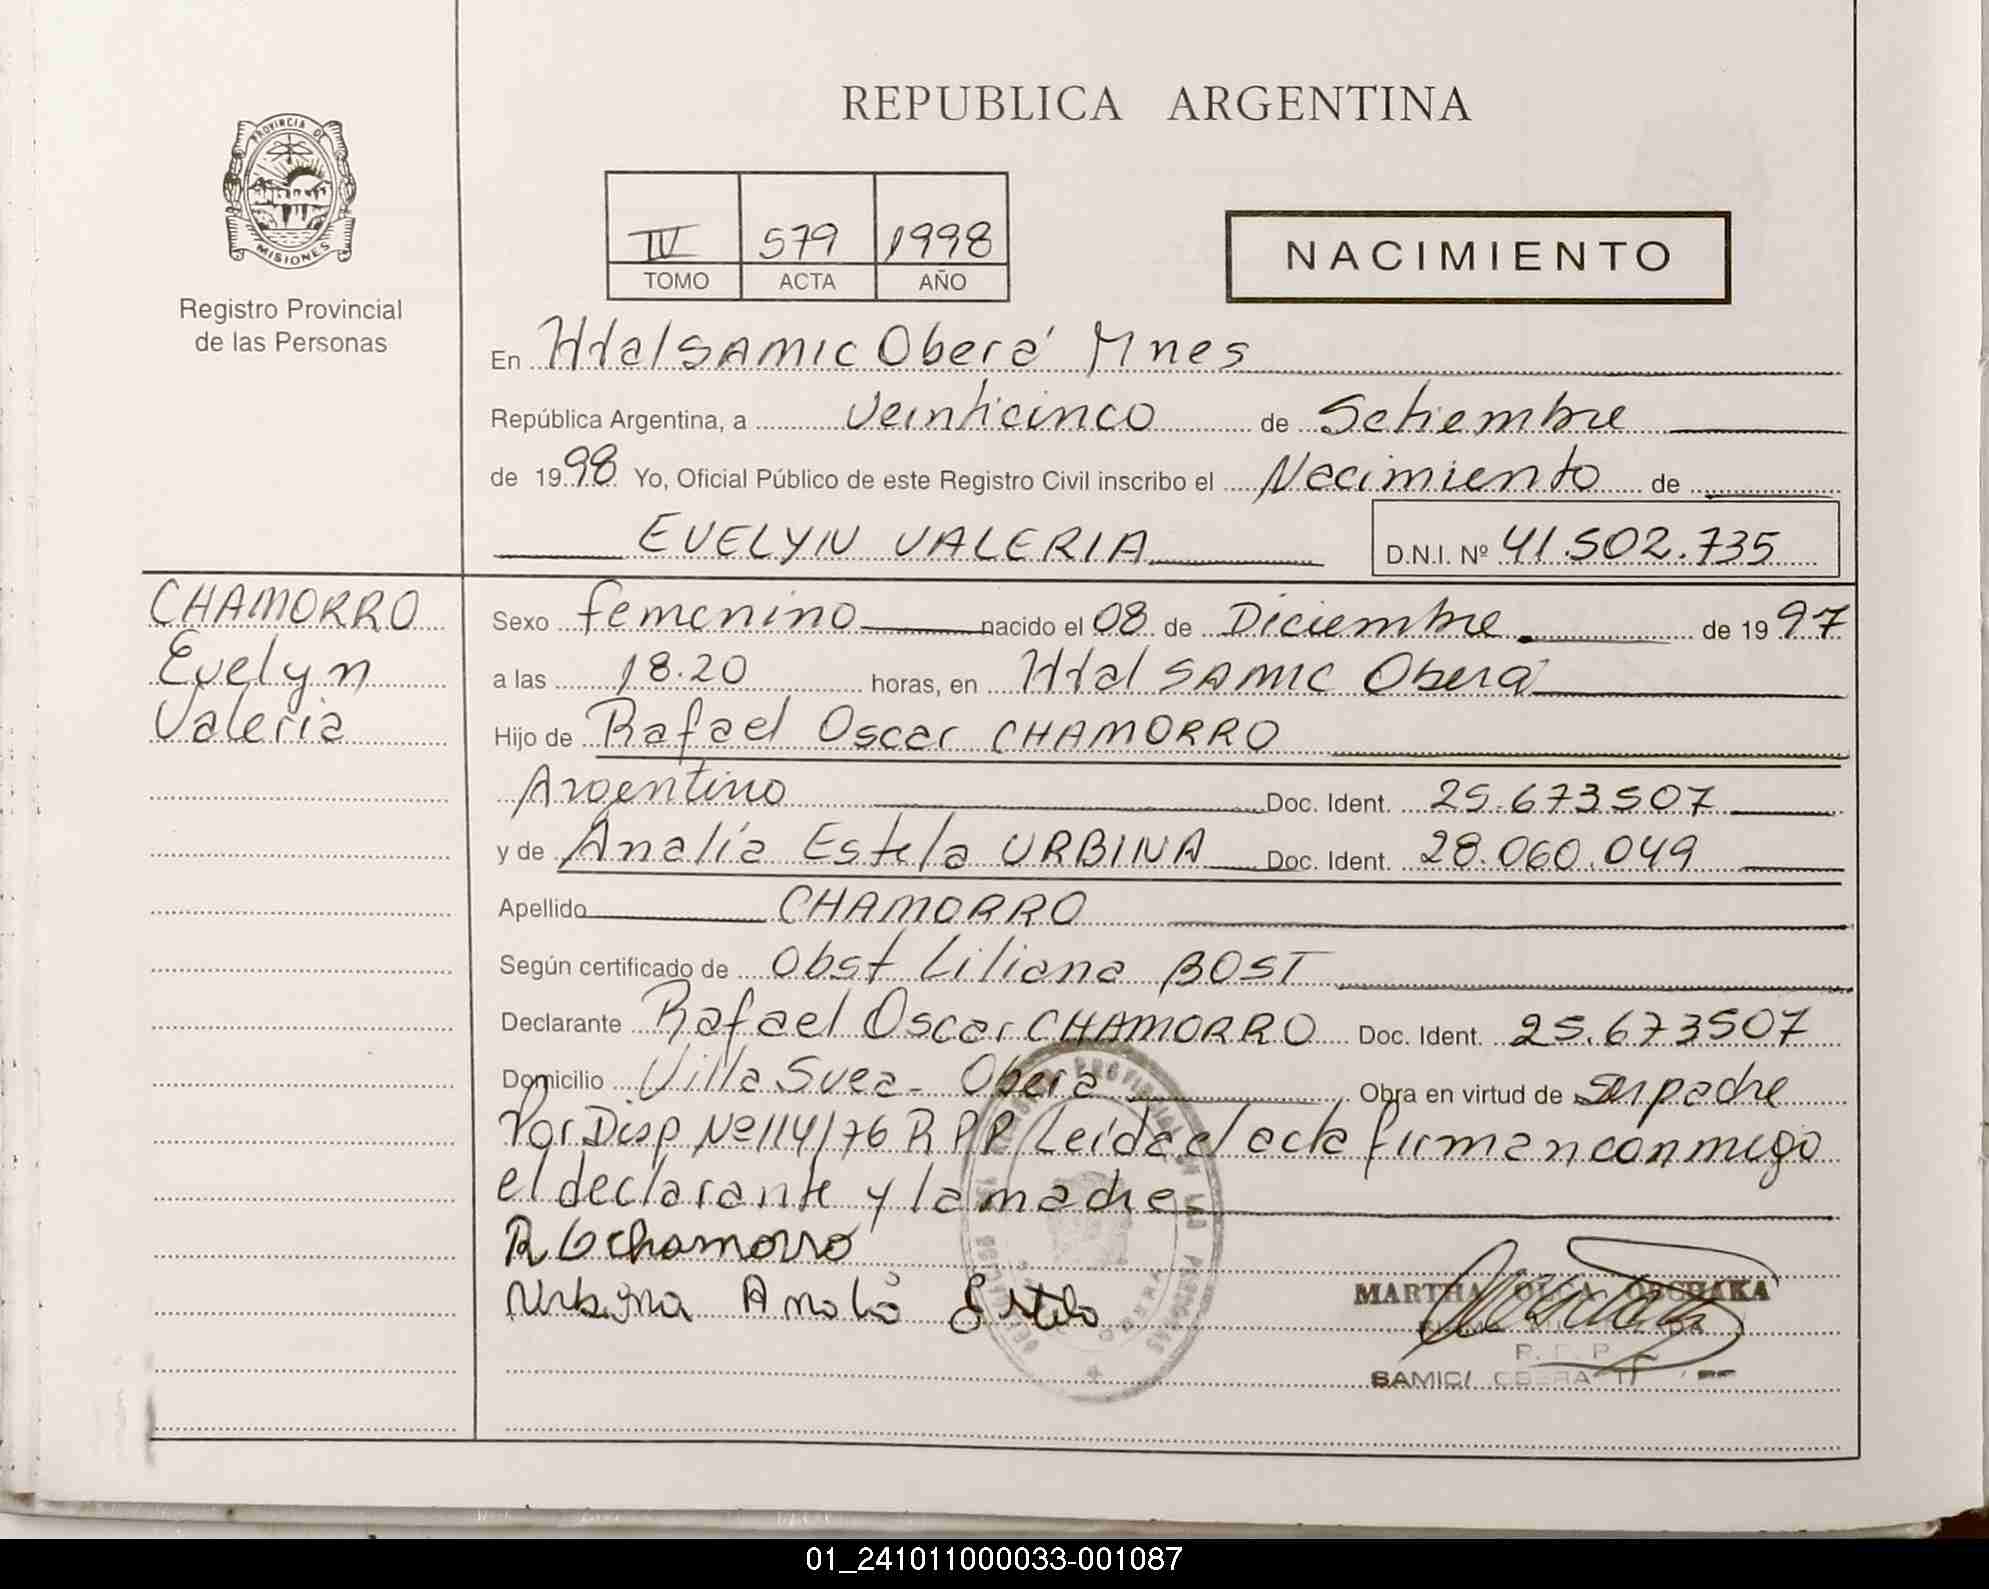 REPUBLICA ARGENTINA
PROVINCIA DE
MISIONES
Registro Provincial
de las Personas
IV 579 1998
TOMO ACTA AÑO
NACIMIENTO
En Htal SAMIC Oberá Mnes
República Argentina, a veinticinco de Setiembre
de 1998 Yo, Oficial Público de este Registro Civil inscribo el Nacimiento de
EVELYN VALERIA D.N.I. Nº 41.502.735
CHAMORRO
Evelyn
Valeria
Sexo femenino nacido el 08 de Diciembre de 1997
a las 18.20 horas, en Htal SAMIC Oberá
Hijo de Rafael Oscar CHAMORRO
Argentino Doc. Ident. 25.673507
y de Analía Estela URBINA Doc. Ident. 28.060.049
Apellido CHAMORRO
Según certificado de Obst Liliana BOST
Declarante Rafael Oscar CHAMORRO Doc. Ident. 25.673507
Domicilio Villa Svea - Obera Obra en virtud de ser padre
Por Disp Nº 114/76 R P P Leída el acta firman conmigo
el declarante y la madre
R O chamorro
Urbina Analia Estela
MARTHA OLGA
R. P. P
SAMIC OBERA
01_241011000033-001087